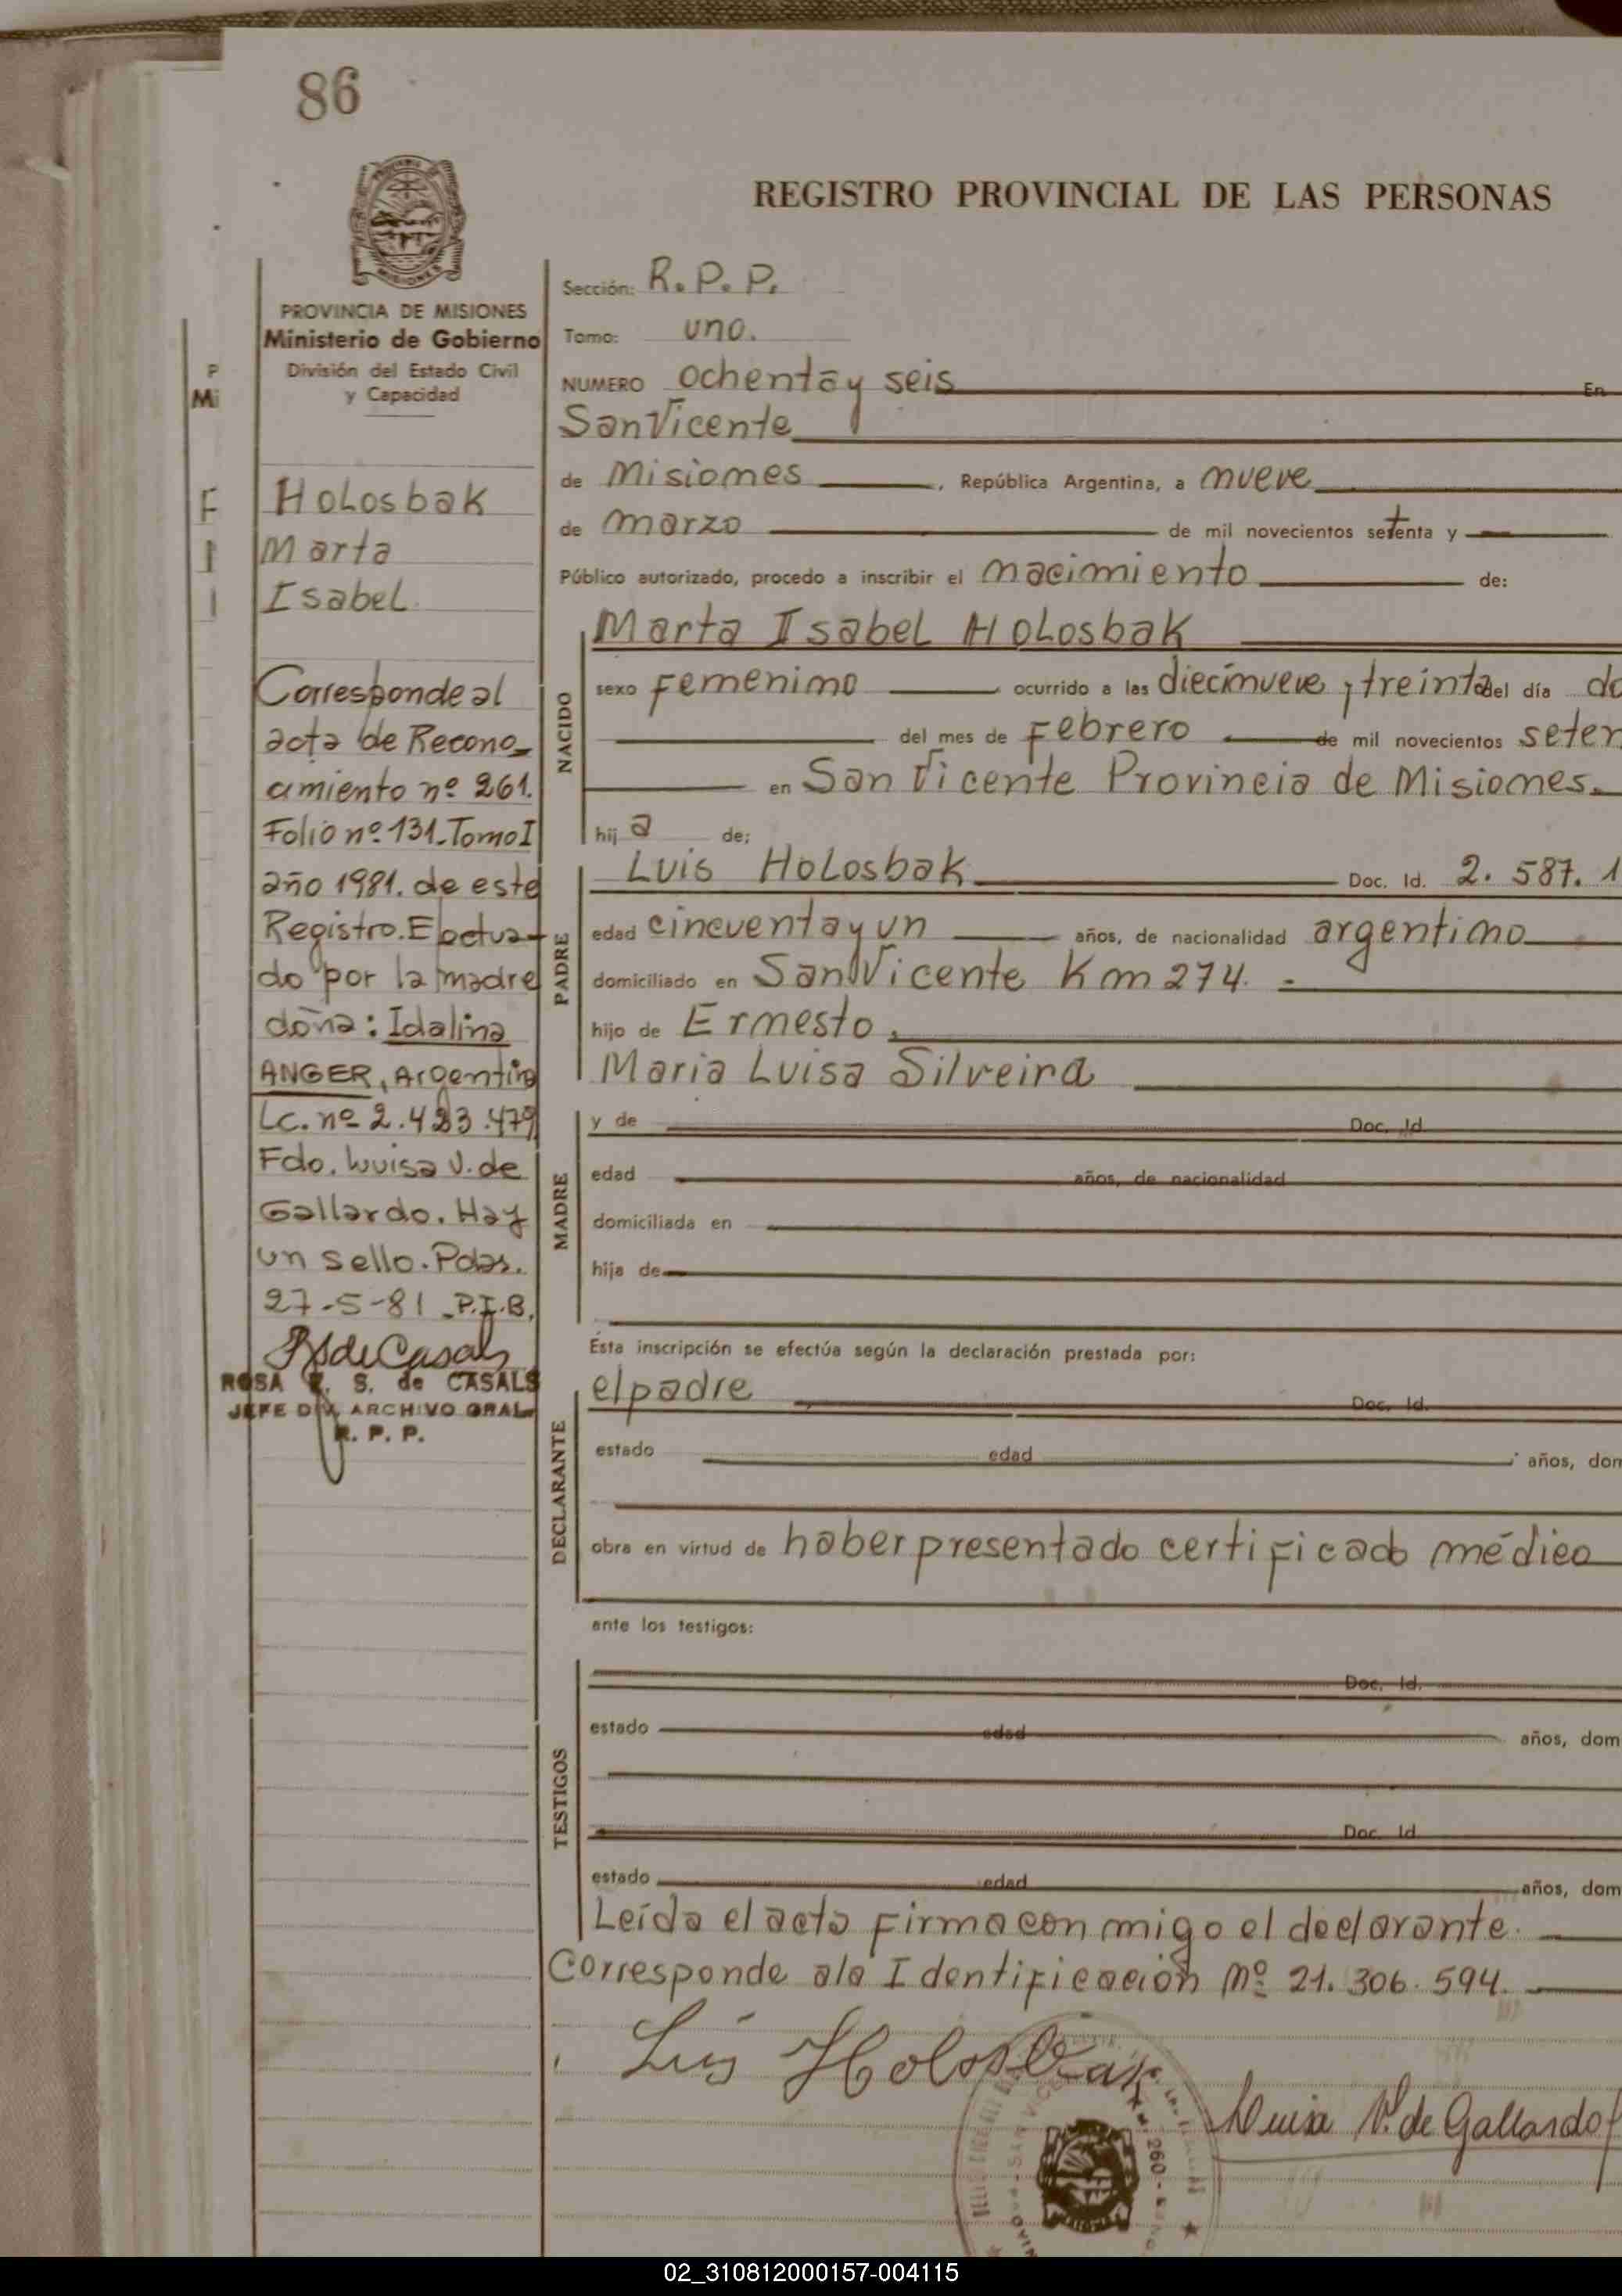 86
REGISTRO PROVINCIAL DE LAS PERSONAS
PROVINCIA DE MISIONES
Ministerio de Gobierno
División del Estado Civil
y Capacidad
P
Mi
F
Holosbak
Marta
Isabel
Corresponde al
acta de Recono-
cimiento nº 261.
Folio nº 131-Tomo I
año 1981. de este
Registro. Efectua-
do por la madre
doña: Idalina
ANGER, Argentina
Lc. nº 2.423.479
Fdo. Luisa V. de
Gallardo. Hay
un sello. Pdas.
27-5-81 - P.I.B.
RS de Casals
ROSA E. S. de CASALS
JEFE DIV. ARCHIVO GRAL.
R. P. P.
Sección: R.P.P.
Tomo: uno.
NUMERO ochenta y seis En
San Vicente
de Misiones , República Argentina, a nueve
de marzo de mil novecientos setenta y
Público autorizado, procedo a inscribir el nacimiento de:
NACIDO
Marta Isabel Holosbak
sexo femenino ocurrido a las diecinueve y treinta del día do
del mes de Febrero de mil novecientos seten
en San Vicente Provincia de Misiones.
hij a de:
PADRE
Luis Holosbak Doc. Id. 2. 587. 1
edad cincuenta y un años, de nacionalidad argentino
domiciliado en San Vicente Km 274. -
hijo de Ernesto,
Maria Luisa Silveira
MADRE
y de Doc. Id.
edad años, de nacionalidad
domiciliada en
hija de
Esta inscripción se efectúa según la declaración prestada por:
DECLARANTE
el padre Doc. Id.
estado edad años, dom
obra en virtud de haber presentado certificado médico
ante los testigos:
TESTIGOS
Doc. Id.
estado edad años, dom
Doc. Id.
estado edad años, dom
Leída el acta firma con migo el declarante.
Corresponde a la Identificación Nº 21. 306. 594.
Luis Holosbak
Luisa V. de Gallardo
260
02_310812000157-004115